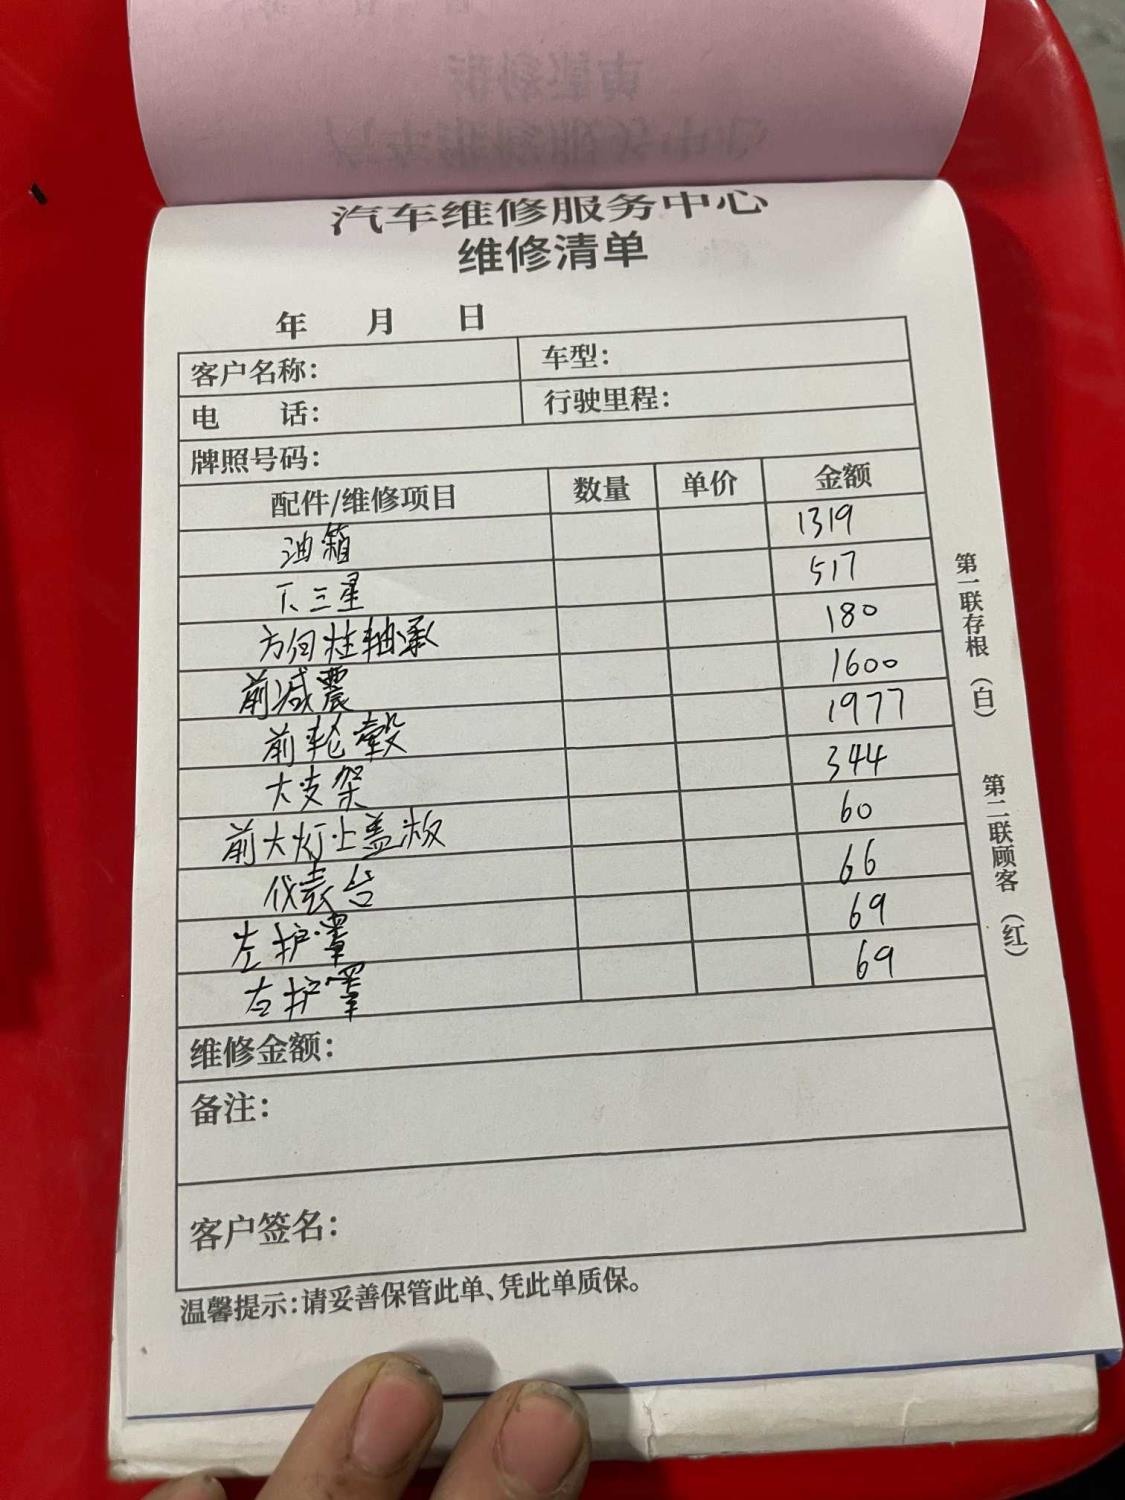 汽车维修服务中心
维修清单
年 月 日
客户名称: 车型:
电 话: 行驶里程:
牌照号码:
配件/维修项目 数量 单价 金额
油箱 1319
下三星 517
方向柱轴承 180
前减震 1600
前轮毂 1977
大支架 344
前大灯上盖板 60
仪表台 66
左护罩 69
右护罩 69
维修金额:
备注:
客户签名:
温馨提示:请妥善保管此单、凭此单质保。
第一联存根（白）
第二联顾客（红）